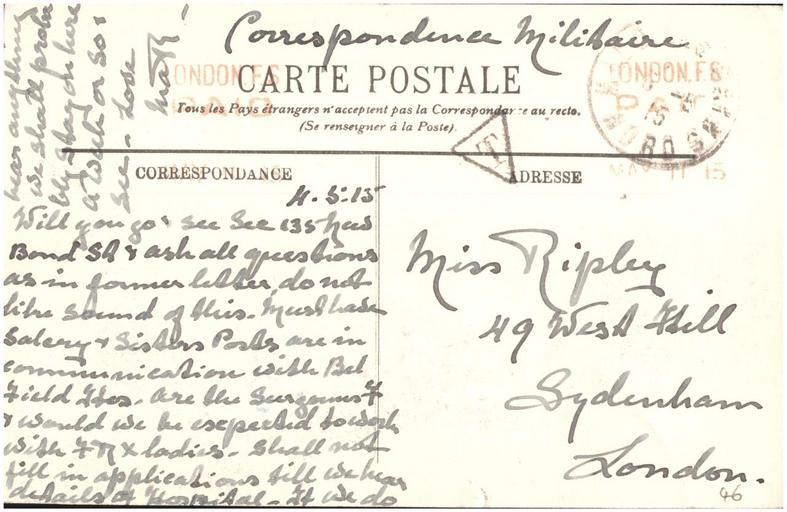 Correspondence Militaire
CARTE POSTALE
Tous les Pays étrangers n'acceptent pas la Correspondance au recto.
(Se renseigner à la Poste).
LONDON.F.S
PAID
LONDON.F.S
MAY 11 15
T
CORRESPONDANCE
ADRESSE
4.5.15
Will you go & see See 135 New
Bond St & ask all questions
as in former letter, do not
like sound of this. Must have
Salery & Sisters Posts are in
communication with Bel
Field Hos. are the Surgeons F
& would we be expected to work
with F R X ladies. Shall not
fill in applications till we hear
details of Hospital. If we do
hear anything
we shall
stay on here
a week or so
See - Love
Miss Ripley
49 West Hill
Sydenham
London.
46